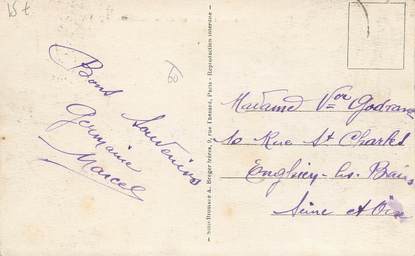 15 €
Bons Souvenirs
Germaine
Marcel
Imp. Dumas & Berger frères, 9, rue Thénard, Paris - Reproduction interdite
Madame Vve Godrane
10 Rue St Charles
Enghien-les-Bains
Seine et Oise